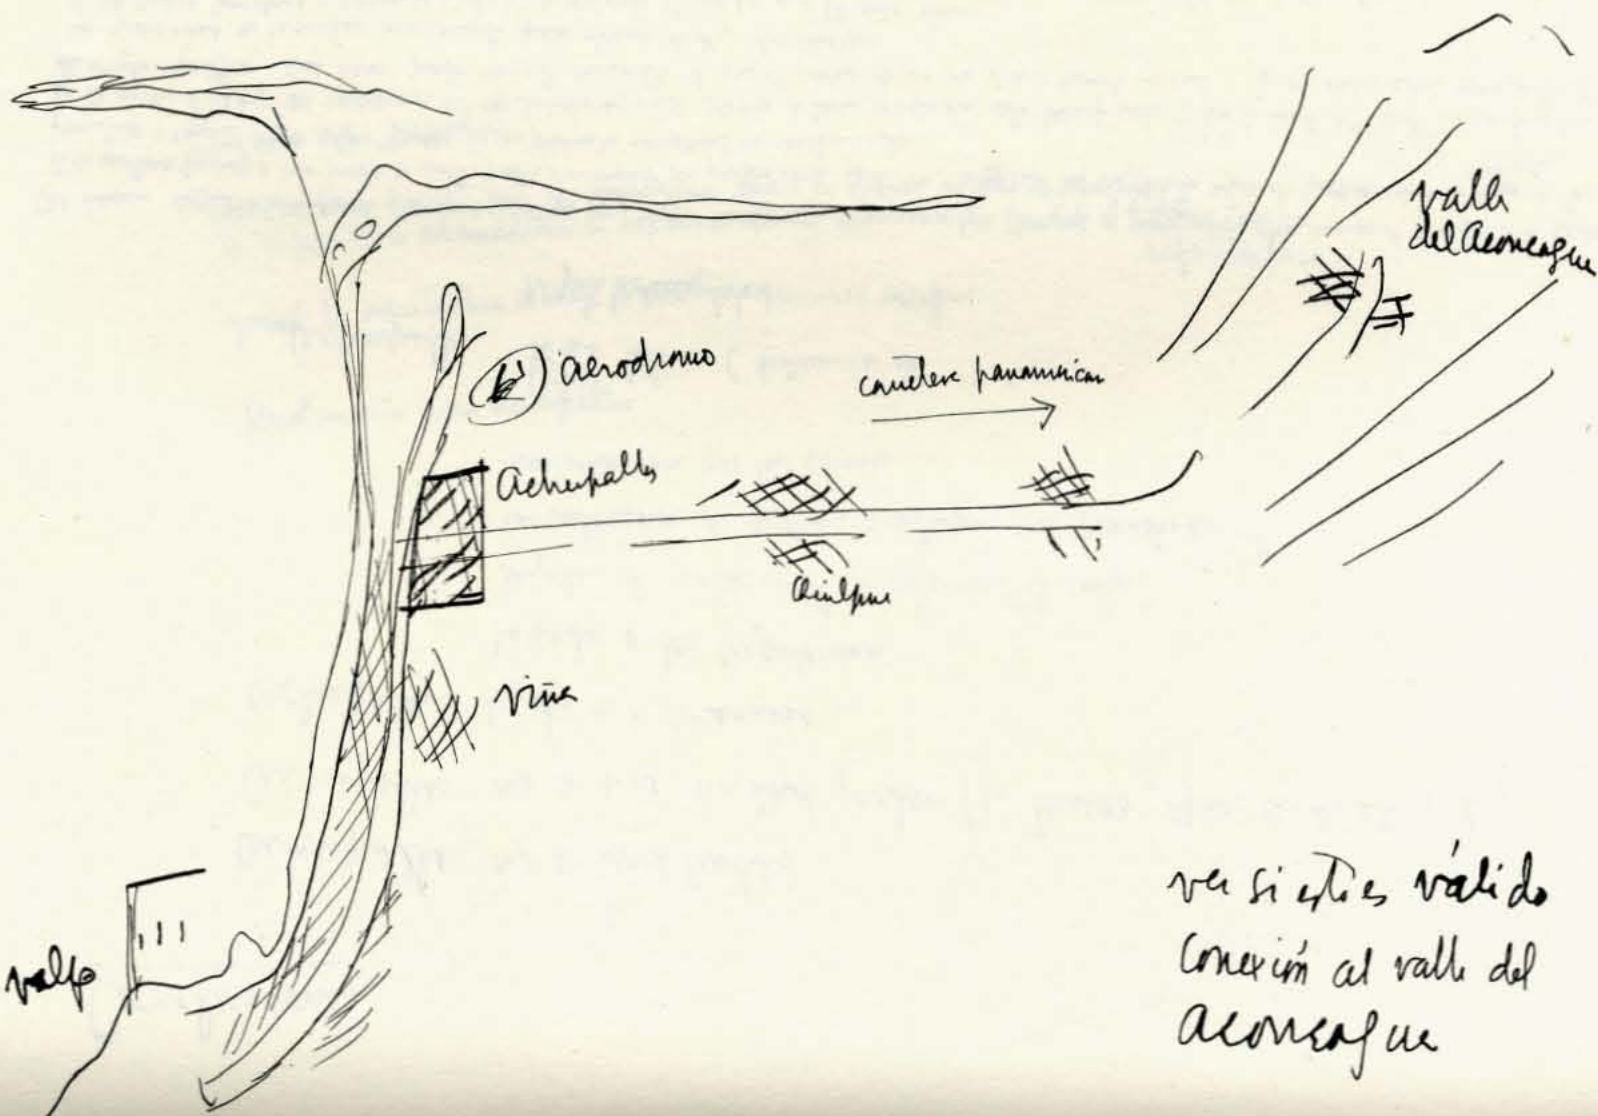 valle
del Aconcagua
aerodromo
carretera panamerican
Achupallas
Quilpue
viña
valpo
ver si esto es válido
conexión al valle del
aconcagua